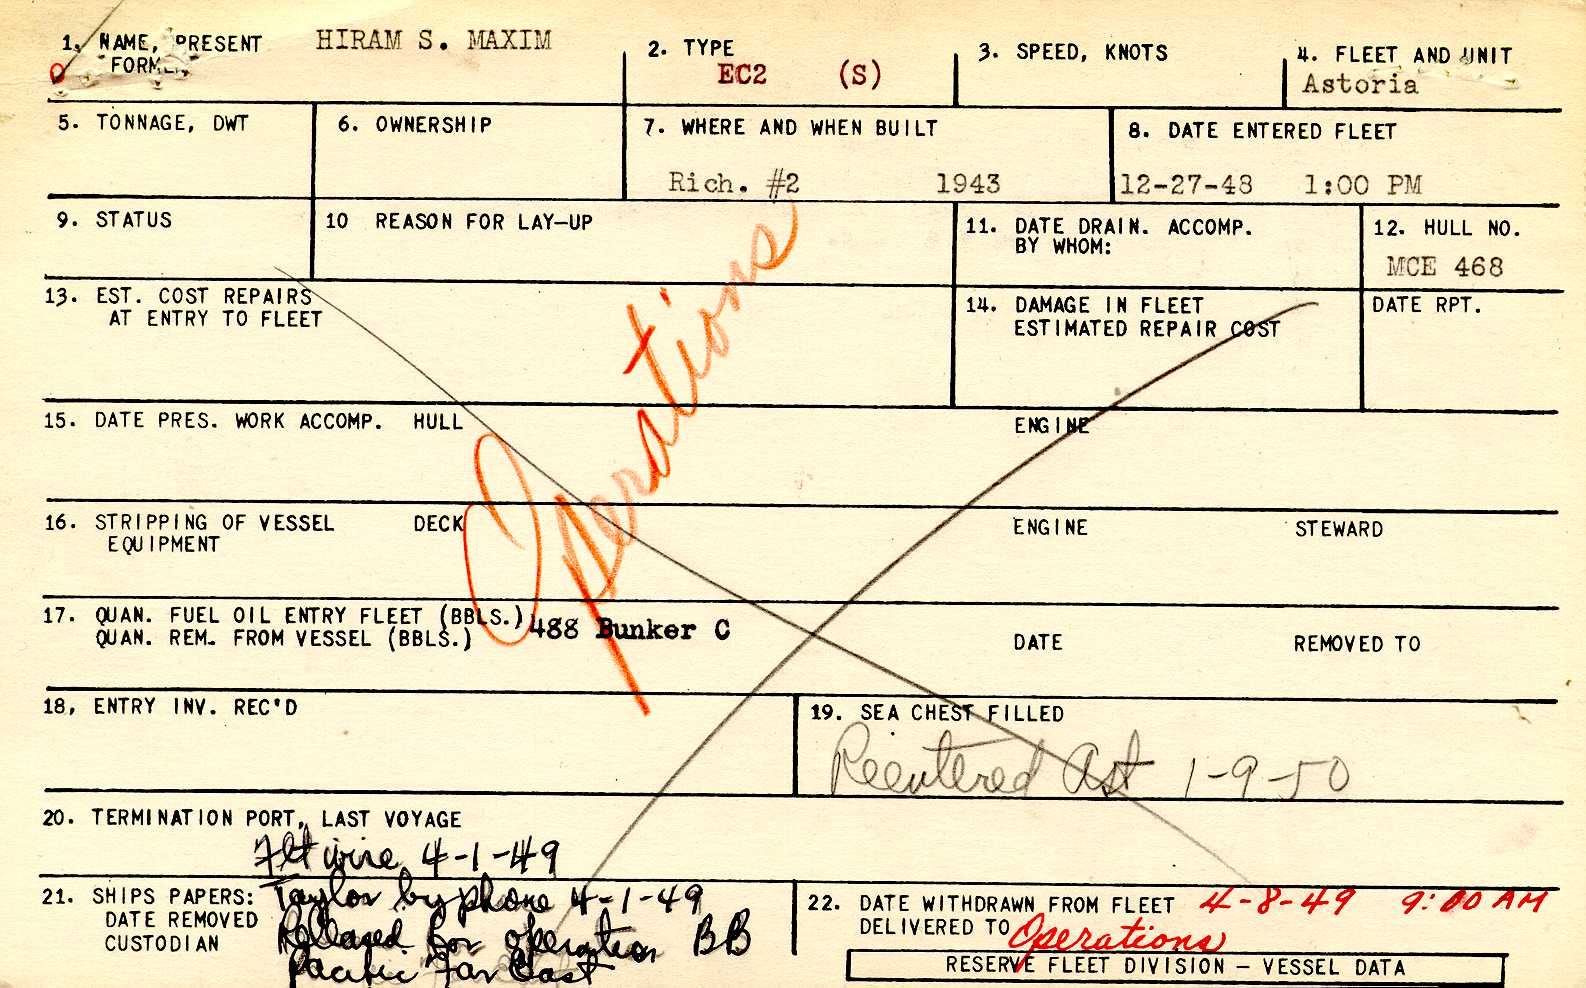 1. NAME, PRESENT HIRAM S. MAXIM
FORMER
2. TYPE
EC2 (S)
3. SPEED, KNOTS
4. FLEET AND UNIT
Astoria
5. TONNAGE, DWT
6. OWNERSHIP
7. WHERE AND WHEN BUILT
Rich. #2 1943
8. DATE ENTERED FLEET
12-27-48 1:00 PM
9. STATUS
10 REASON FOR LAY-UP
11. DATE DRAIN. ACCOMP.
BY WHOM:
12. HULL NO.
MCE 468
13. EST. COST REPAIRS
AT ENTRY TO FLEET
14. DAMAGE IN FLEET
ESTIMATED REPAIR COST
DATE RPT.
Operations
15. DATE PRES. WORK ACCOMP. HULL ENGINE
16. STRIPPING OF VESSEL DECK ENGINE STEWARD
EQUIPMENT
17. QUAN. FUEL OIL ENTRY FLEET (BBLS.) 488 Bunker C
QUAN. REM. FROM VESSEL (BBLS.) DATE REMOVED TO
18. ENTRY INV. REC'D
19. SEA CHEST FILLED
Reentered Ast 1-9-50
20. TERMINATION PORT, LAST VOYAGE
Flt wire 4-1-49
21. SHIPS PAPERS: Taylor by phone 4-1-49
DATE REMOVED Released for operation BB
CUSTODIAN Pacific Far East
22. DATE WITHDRAWN FROM FLEET 4-8-49 9:00 AM
DELIVERED TO Operations
RESERVE FLEET DIVISION – VESSEL DATA